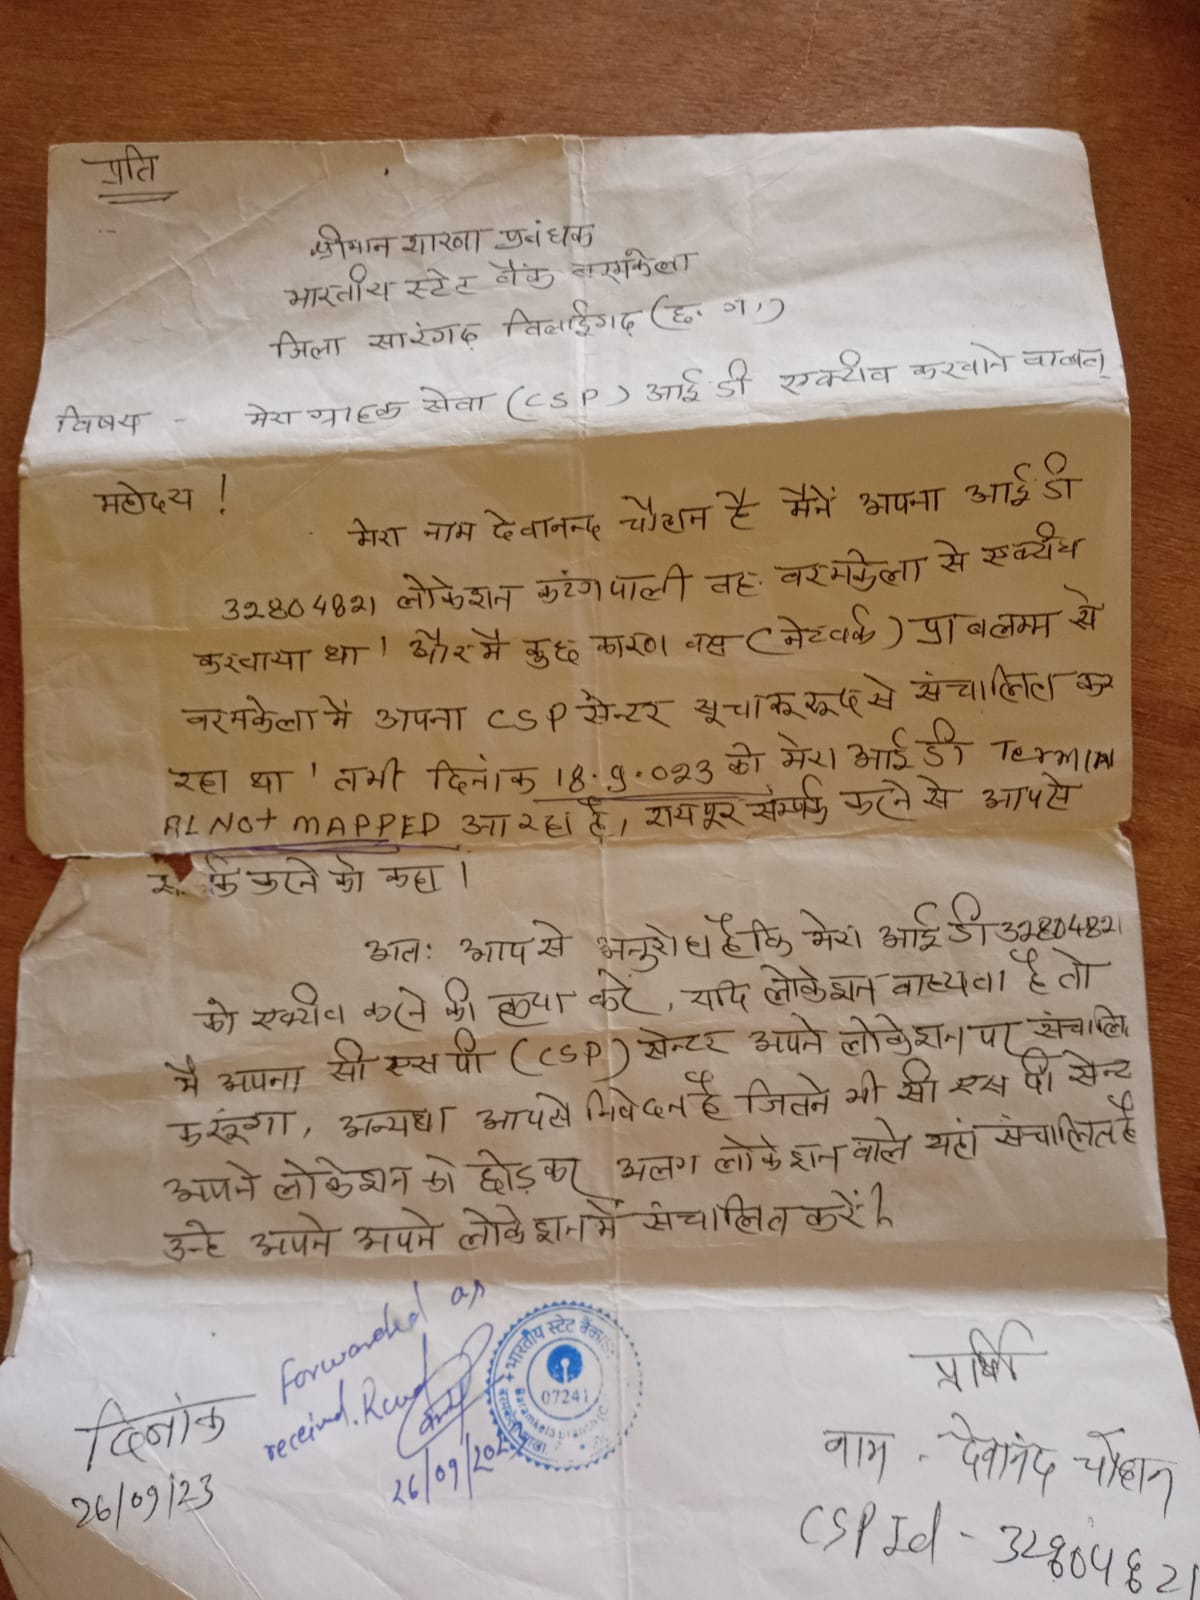 प्रति
श्रीमान शाखा प्रबंधक
भारतीय स्टेट बैंक बरमकेला
जिला सारंगढ़ बिलाईगढ़ (छ. ग.)
विषय - मेरा ग्राहक सेवा (CSP) आई डी एक्टीव करवाने बाबत्
महोदय !
मेरा नाम देवानन्द चौहान है मैनें अपना आई डी
32804821 लोकेशन करंगपाली वह. बरमकेला से एक्टीव
करवाया था। और मै कुछ कारण वस (नेटवर्क) प्राबलम्म से
बरमकेला मे अपना CSP सेन्टर सूचारू रूप से संचालित कर
रहा था। तभी दिनांक 18.9.023 को मेरा आई डी Termin
AL Not MAPPED आ रहा है, रायपूर संर्म्पक करने से आपसे
र्क करने को कहा।
अतः आप से अनुरोध है कि मेरा आई डी 32804821
को एक्टीव करने की कृपा करें, यदि लोकेशन बाध्यता है तो
मै अपना सी एस पी (CSP) सेन्टर अपने लोकेशन पर संचालि
करूंगा, अन्यथा आपसे निवेदन है जितने भी सी एस पी सेन्ट
अपने लोकेशन को छोड़ कर अलग लोकेशन वाले यहां संचालित है
उन्हे अपने अपने लोकेशन में संचालित करें।
Forwarded as
received.
26/09/202
भारतीय स्टेट बैंक
07241
Baramkela Branch
दिनांक
26/09/23
प्रार्थी
नाम - देवानंद चौहान
CSP Id - 32804821